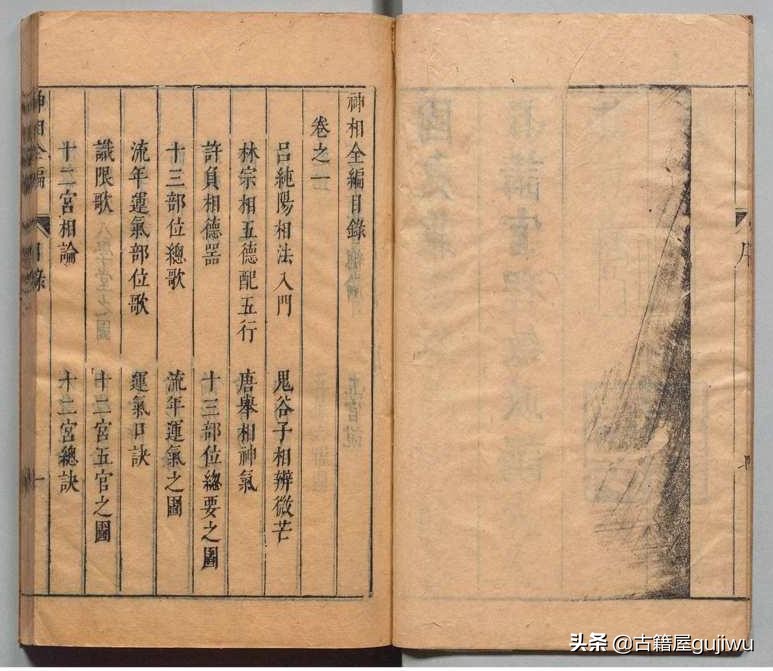 序
神相全編目錄
卷之一
呂純陽相法入門
鬼谷子相辨微芒
林宗相五德配五行
唐舉相神氣
許負相德器
十三部位總要之圖
十三部位總歌
流年運氣之圖
流年運氣部位歌
運氣口訣
識限歌
十二宮五官之圖
十二宮相論
十二宮總訣
神相全編
目錄
一
头条 @古籍屋gujiwu